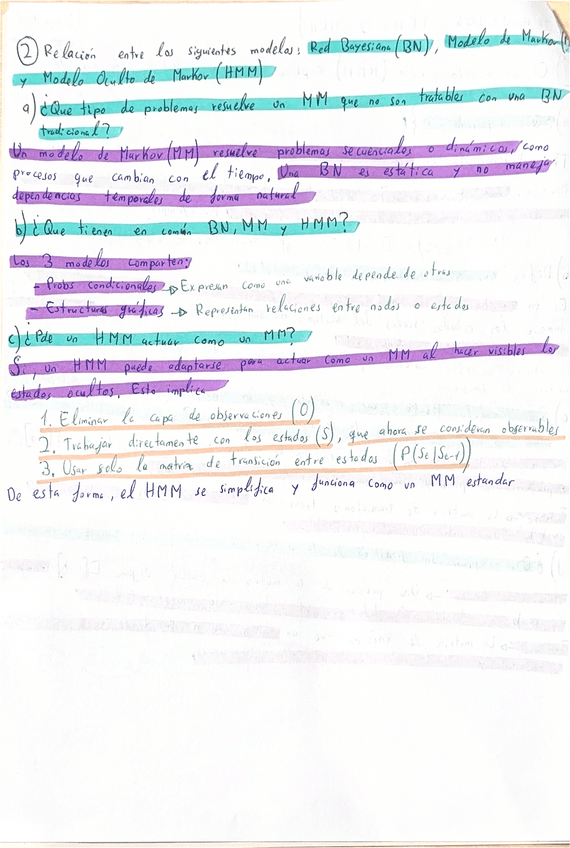 ② Relación entre los siguientes modelos: Red Bayesiana (BN), Modelo de Markov
y Modelo Oculto de Markov (HMM)
a) ¿Que tipo de problemas resuelve un MM que no son tratables con una BN
tradicional?
Un modelo de Markov (MM) resuelve problemas secuenciales o dinámicos, como
procesos que cambian con el tiempo. Una BN es estática y no maneja
dependencias temporales de forma natural
b) ¿Que tienen en común BN, MM y HMM?
Los 3 modelos comparten:
- Probs condicionales → Expresan como una variable depende de otras
- Estructuras gráficas → Representan relaciones entre nodos o estados
c) ¿Pde un HMM actuar como un MM?
Si, un HMM puede adaptarse para actuar como un MM al hacer visibles los
estados ocultos. Esto implica
1. Eliminar la capa de observaciones (O)
2. Trabajar directamente con los estados (S), que ahora se consideran observables
3. Usar solo la matriz de transición entre estados (P(St|St-1))
De esta forma, el HMM se simplifica y funciona como un MM estandar